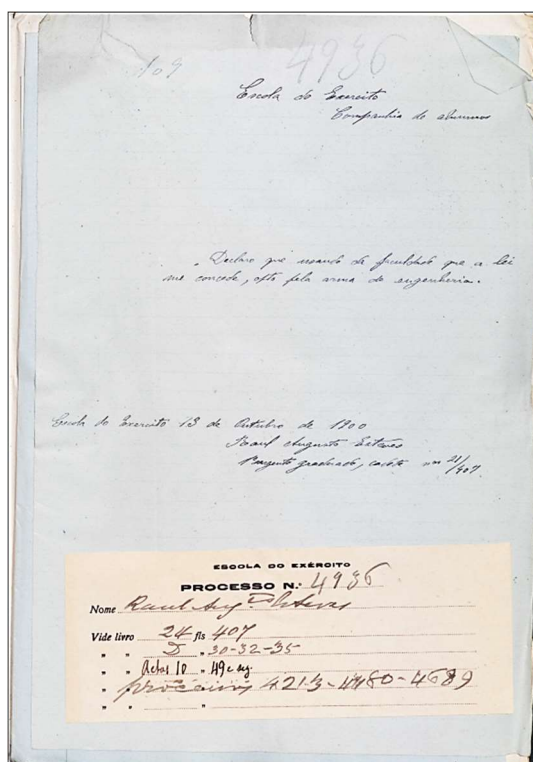 109
4936
Escola do Exercito
Companhia de alumnos
Declaro que usando da faculdade que a lei
me concede, opto pela arma de engenheria.
Escola do Exercito 13 de Outubro de 1900
Raul Augusto Esteves
1º sargento graduado, cadete nº 21/407
ESCOLA DO EXÉRCITO
PROCESSO N.º 4936
Nome Raul Aug.to Esteves
Vide livro 24 fls 407
" " D " 30-32-35
" " Actas 10 " 49 e sg.
" processos 4213-4480-4689
" " "